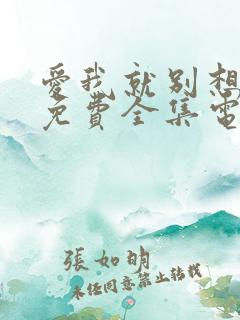 愛我就别想
免費全集電
張如明
未经同意禁止转载